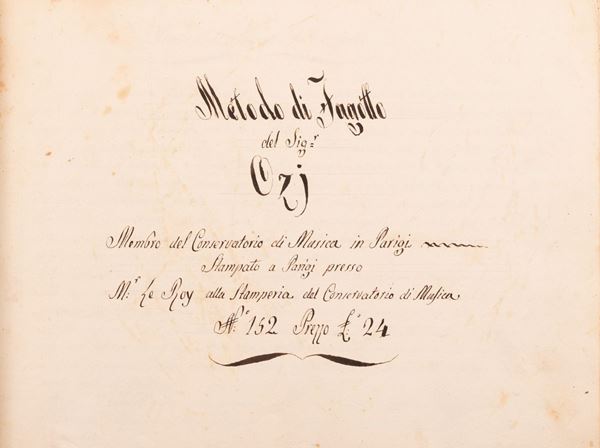 Metodo di Fagotto
del Sig:r
Ozj
Membro del Conservatorio di Musica in Parigi
Stampato a Parigi presso
M:r Le Roy alla Stamperia del Conservatorio di Musica
N:o 152 Prezzo £: 24